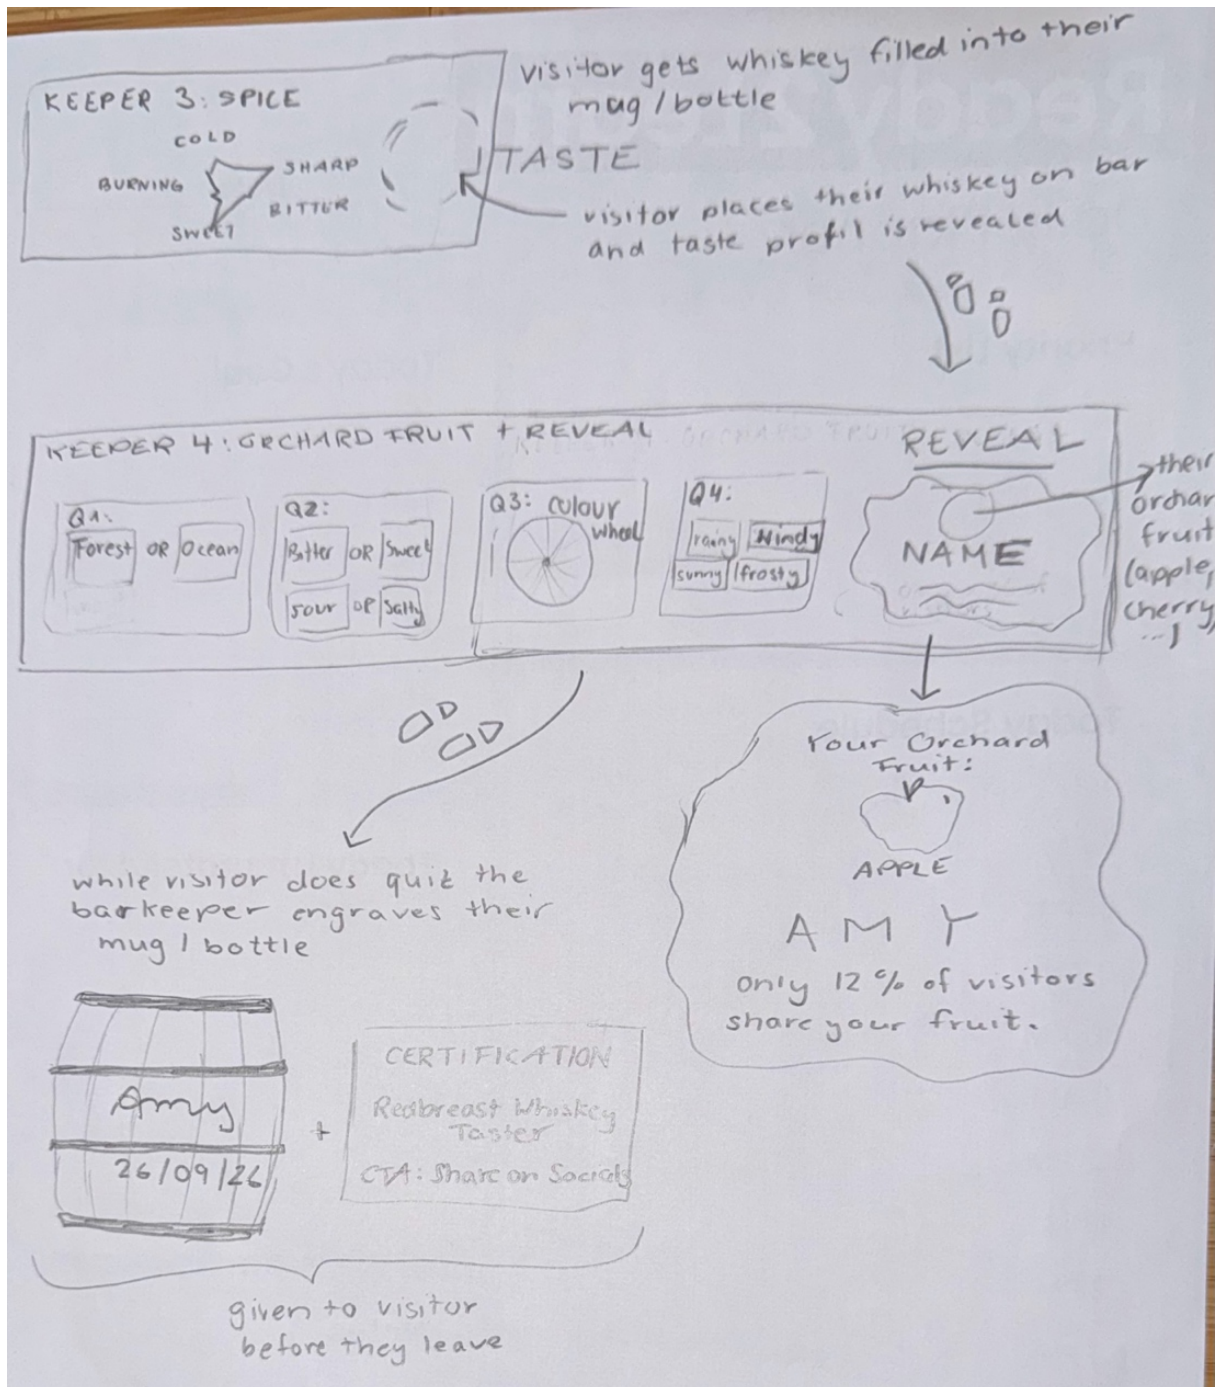 visitor gets whiskey filled into their
mug / bottle
KEEPER 3: SPICE
COLD
SHARP
BURNING
BITTER
SWEET
TASTE
visitor places their whiskey on bar
and taste profil is revealed
KEEPER 4: ORCHARD FRUIT + REVEAL
REVEAL
Q1:
Forest OR Ocean
Q2:
Bitter OR Sweet
sour OR Salty
Q3: colour
wheel
Q4:
rainy windy
sunny frosty
NAME
their
orchar
fruit
(apple,
cherry,
...)
Your Orchard
Fruit:
APPLE
AMY
only 12% of visitors
share your fruit.
while visitor does quiz the
barkeeper engraves their
mug / bottle
Amy
26/09/26
+
CERTIFICATION
Redbreast Whiskey
Taster
CTA: Share on Socials
given to visitor
before they leave